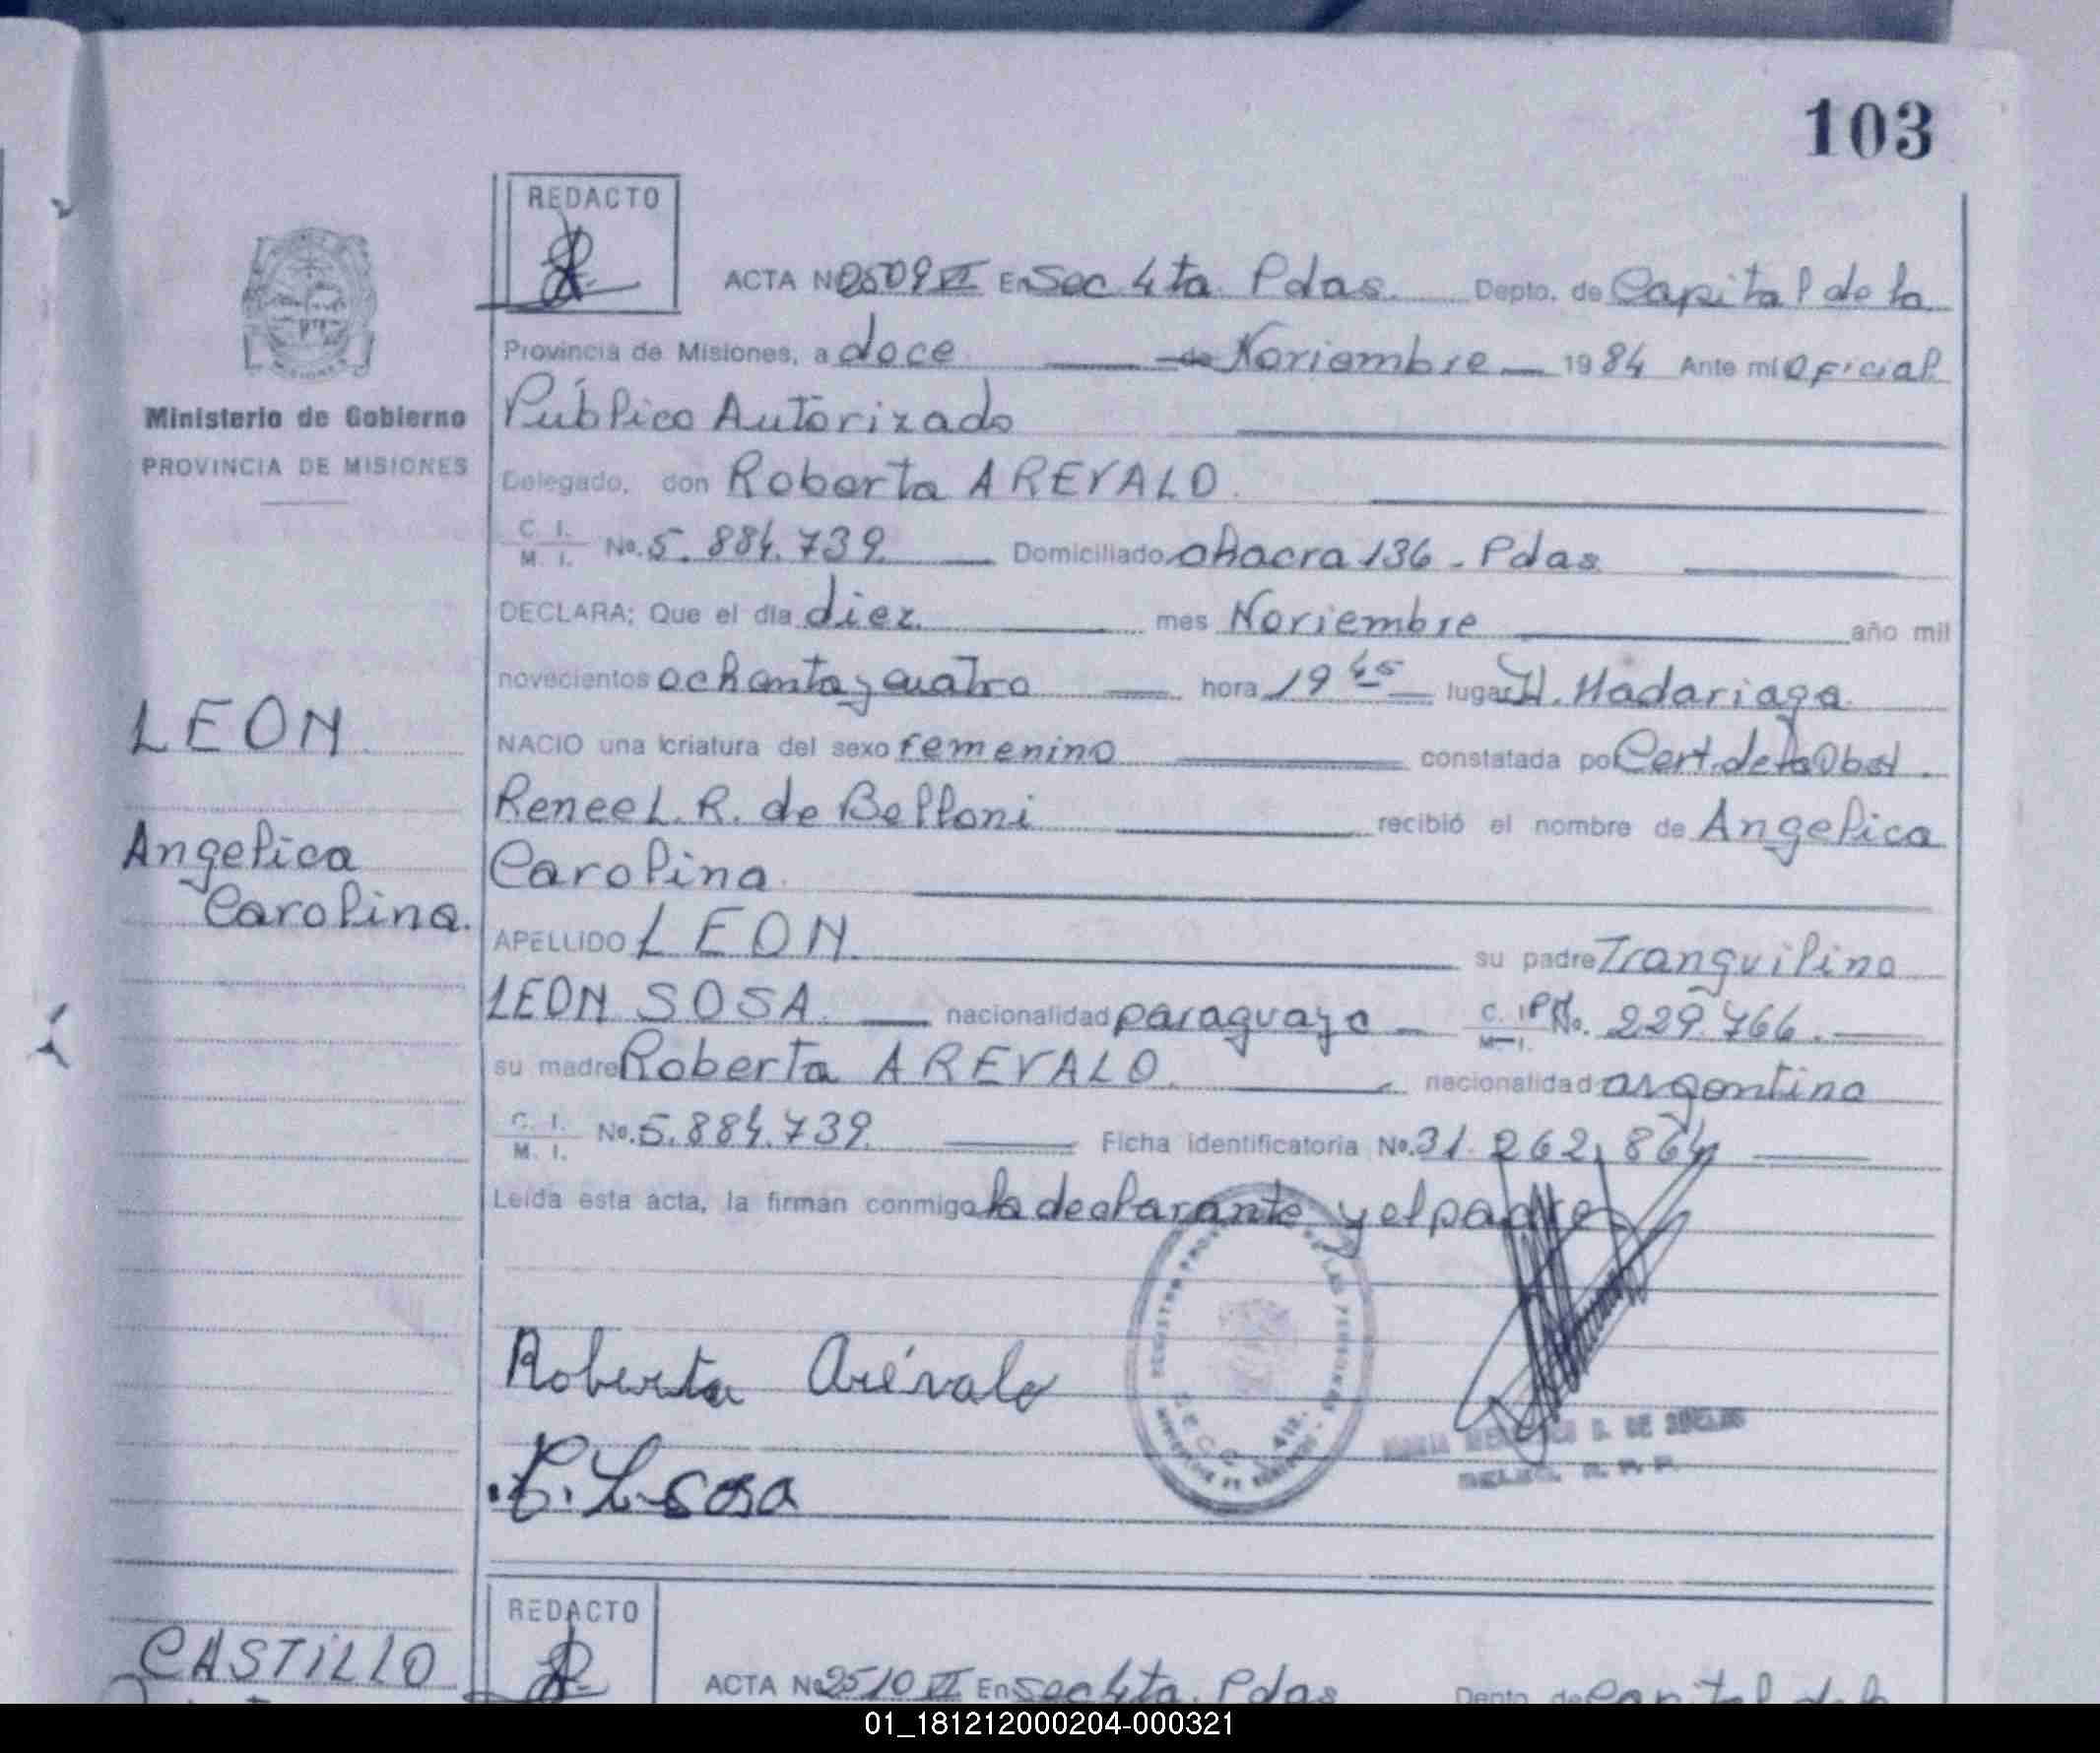 103
REDACTO
ACTA Nº 2509 VI En Sec 4ta Pdas. Depto. de Capital de la
Provincia de Misiones, a doce de Noviembre 1984 Ante mi Oficial
Ministerio de Gobierno
Público Autorizado
PROVINCIA DE MISIONES
Delegado, don Roberta AREVALO
C. I. M. I. No. 5.884.739 Domiciliado chacra 136 - Pdas
DECLARA; Que el día diez mes Noviembre año mil
novecientos ochenta y cuatro hora 19 45 lugar H. Madariaga
LEON
NACIO una criatura del sexo femenino constatada por Cert. de la Obst.
Renee L. R. de Belloni recibió el nombre de Angelica
Angelica
Carolina
Carolina.
APELLIDO LEON su padre Tranquilino
LEON SOSA nacionalidad paraguayo C. I. M. I. No. 229.766.
su madre Roberta AREVALO nacionalidad argentina
C. I. M. I. No. 5.884.739 Ficha identificatoria No. 31.262.864
Leída esta acta, la firman conmigo la declarante y el padre
Roberta Arévalo
T. L. Sosa
DE
REDACTO
CASTILLO
ACTA Nº 2510 VI En Sec 4ta. Pdas Depto. de Capital de la
01_181212000204-000321